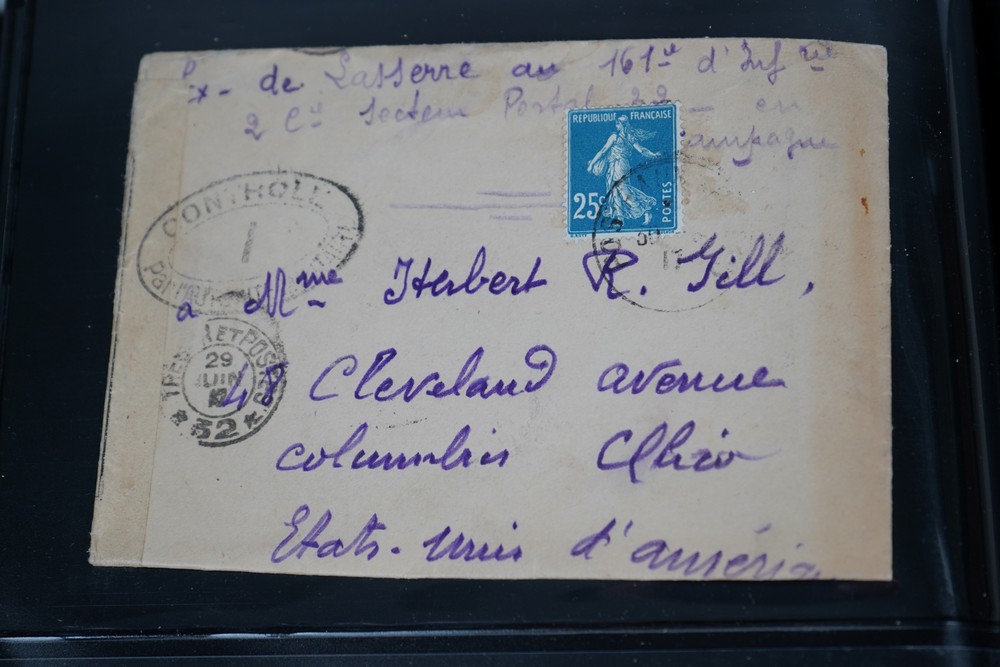 Ex- de Lasserre au 161ᵉ d'Infʳⁱᵉ
2 Cⁱᵉ Secteur Postal 22 - en
campagne
REPUBLIQUE FRANÇAISE
25ᶜ
POSTES
CONTROLE
1
Par
à Mᵐᵉ Herbert R. Gill,
TRESOR ET POSTES
29
JUIN
*52*
48 Cleveland avenue
columbus Ohio
Etats-unis d'améri